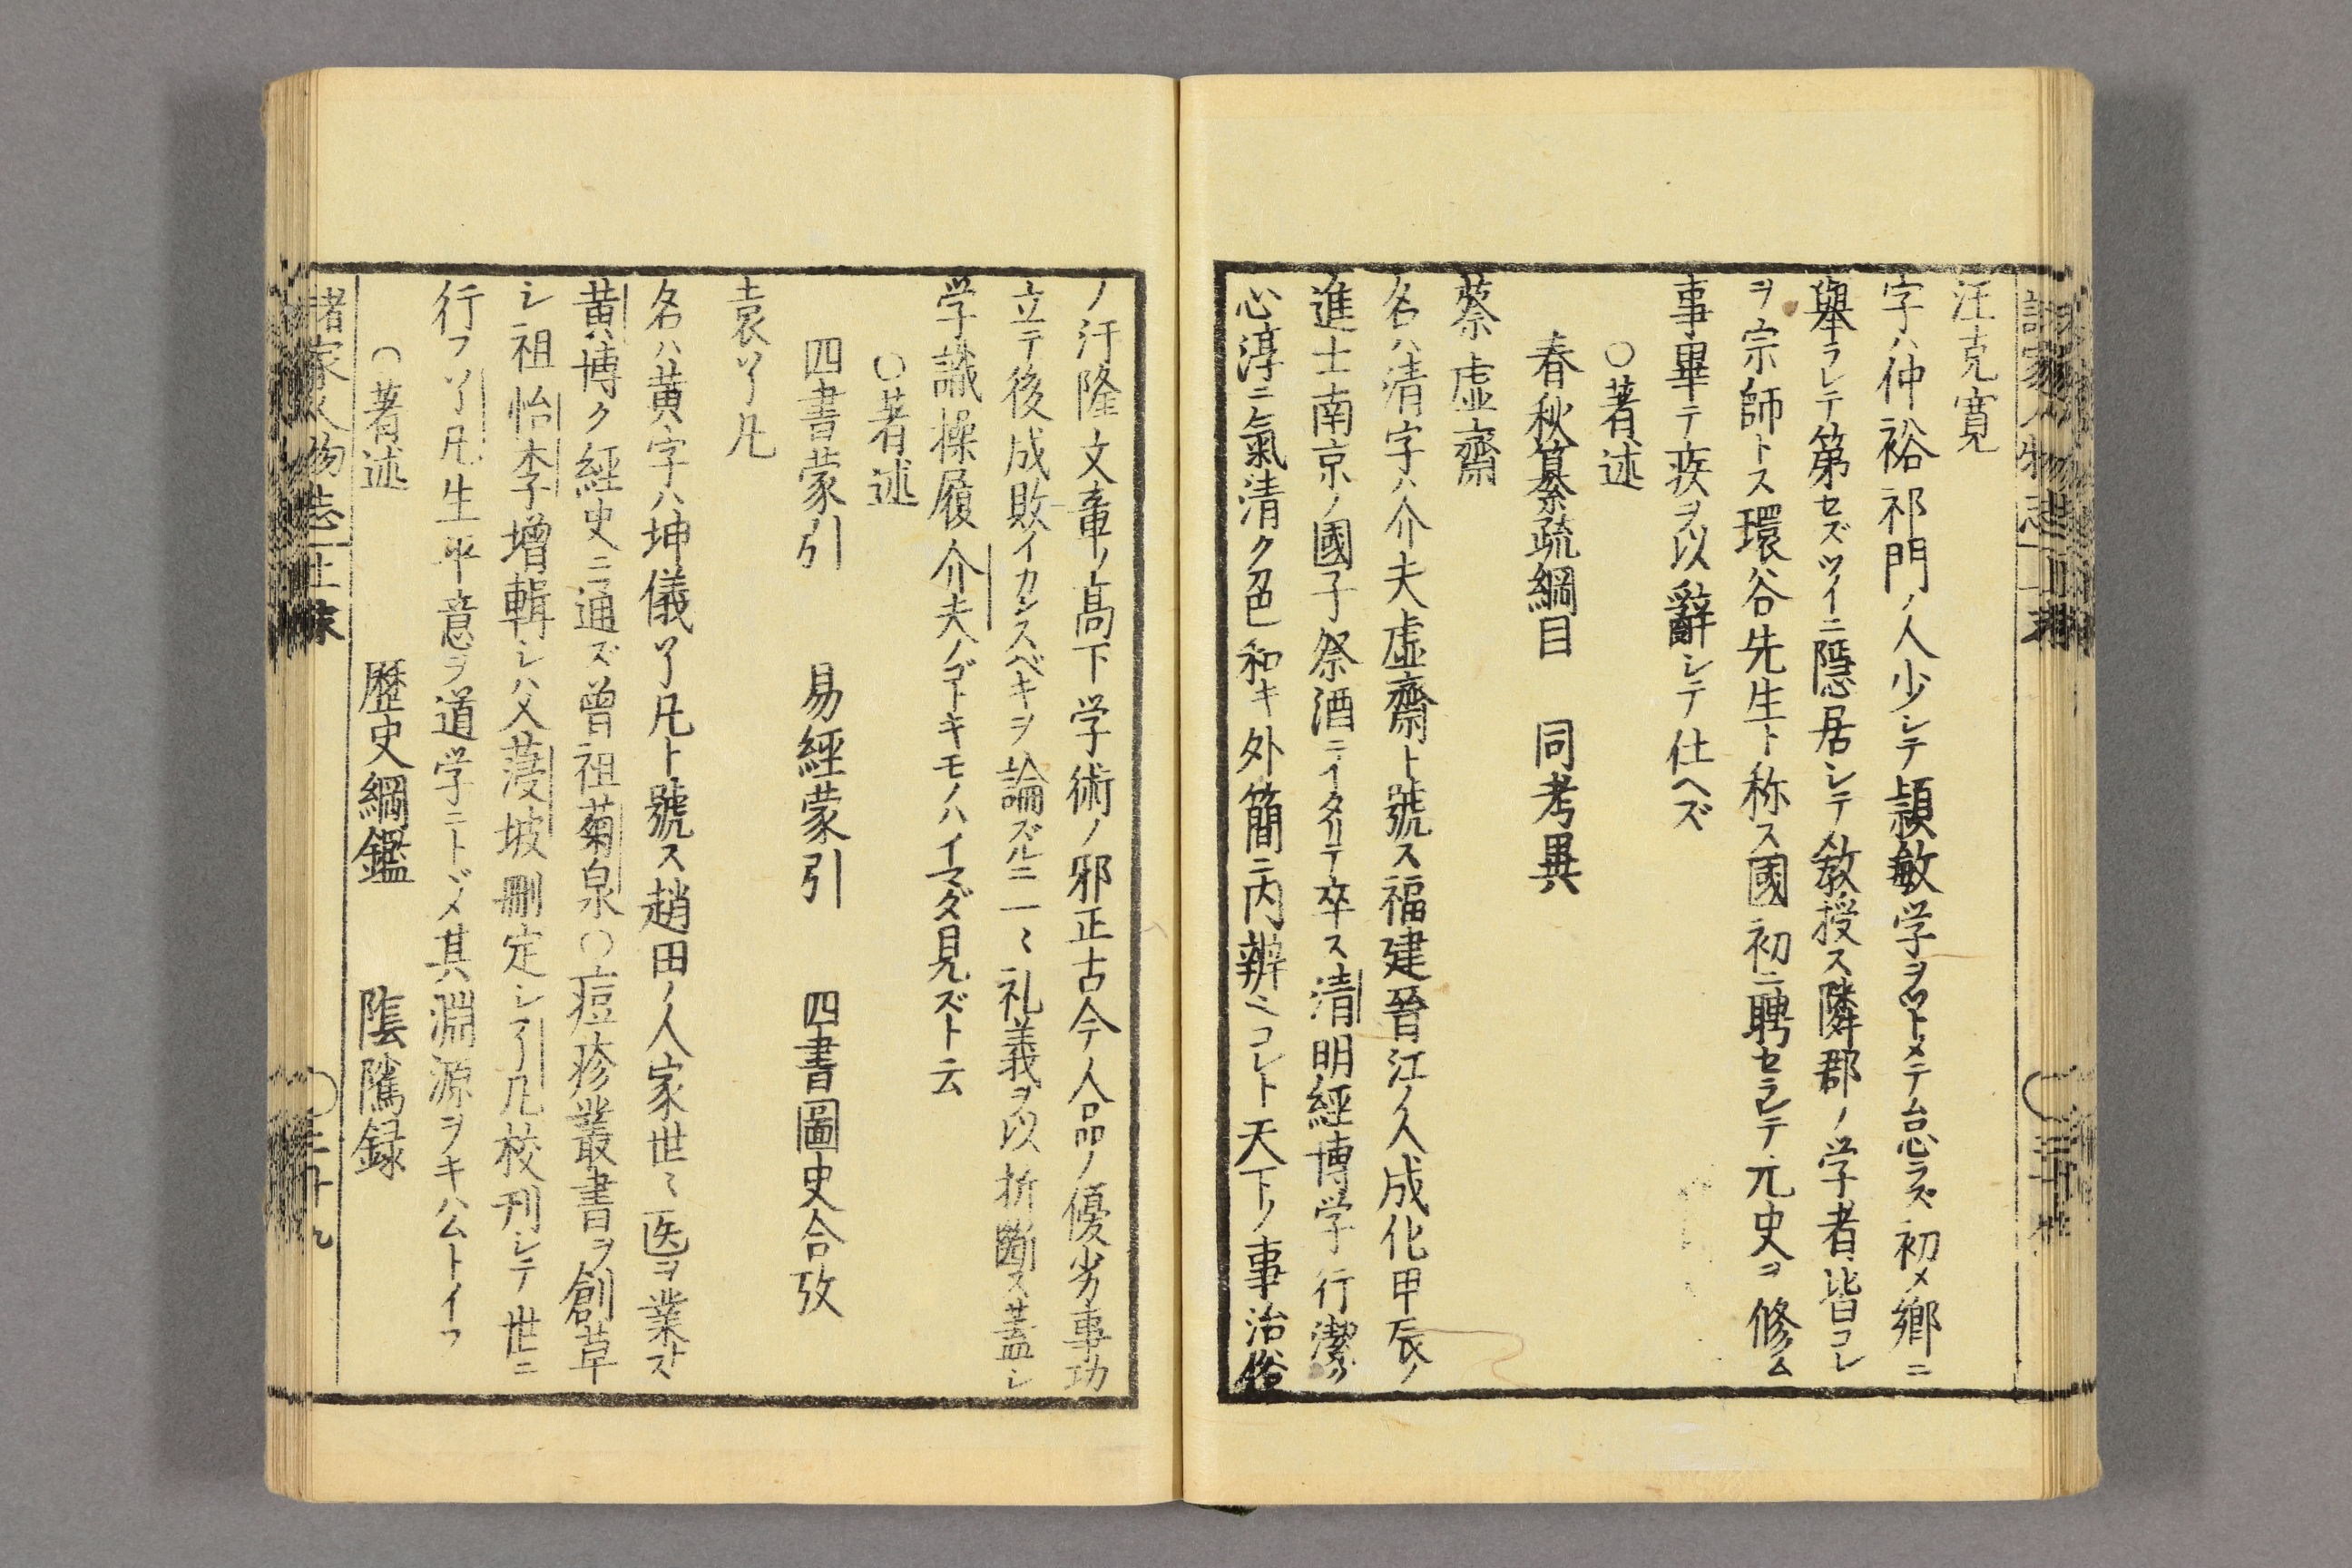 汪克寛
字ハ仲裕祁門ノ人少シテ頴敏学ヲツトメテ怠ラズ初メ郷ニ
舉ラレテ第セズツイニ隱居シテ教授ス隣郡ノ学者皆コレ
ヲ宗師トス環谷先生ト称ス國初ニ聘セラレテ元史ヲ修ム
事畢テ疾ヲ以辭シテ仕ヘズ
○著述
春秋纂疏綱目 同考異
蔡虚齋
名ハ清字ハ介夫虚齋ト號ス福建晉江ノ人成化甲辰ノ
進士南京ノ國子祭酒ニイタリテ卒ス清明經博学行潔ク
心淳ニ氣清ク色和キ外簡ニ内辨ニコレト天下ノ事治俗
ノ汙隆文章ノ高下学術ノ邪正古今人品ノ優劣事功
立テ後成敗イカンスベキヲ論ズルニ一〻礼義ヲ以折斷ス蓋シ
学識操履介夫ノゴトキモノハイマダ見ズト云
○著述
四書蒙引 易經蒙引 四書圖史合攷
袁了凡
名ハ黄字ハ坤儀了凡ト號ス趙田ノ人家世〻医ヲ業トス
黄博ク經史ニ通ズ曽祖菊泉○痘疹叢書ヲ創草
シ祖怡杏増輯シ父蓡坡刪定シ了凡校刊シテ世ニ
行フ了凡生平意ヲ道学ニトヾメ其淵源ヲキハムトイフ
○著述
歴史綱鑑 陰隲録
諸家人物志 上 三十九